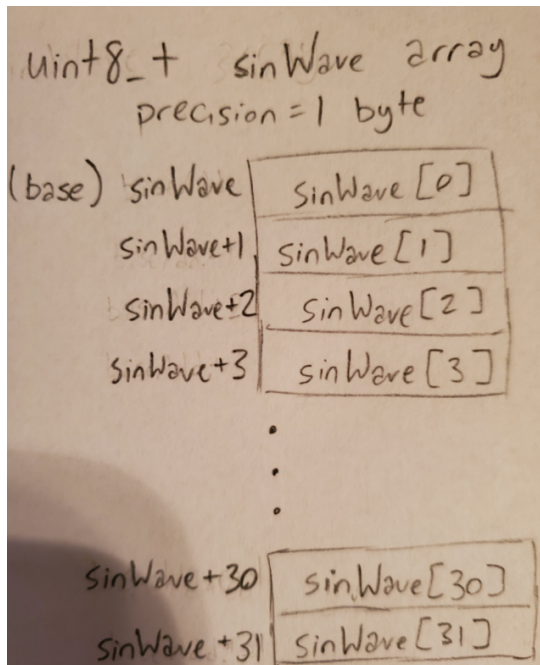 uint8_t sinWave array
precision = 1 byte
(base) sinWave sinWave[0]
sinWave+1 sinWave[1]
sinWave+2 sinWave[2]
sinWave+3 sinWave[3]
sinWave+30 sinWave[30]
sinWave+31 sinWave[31]